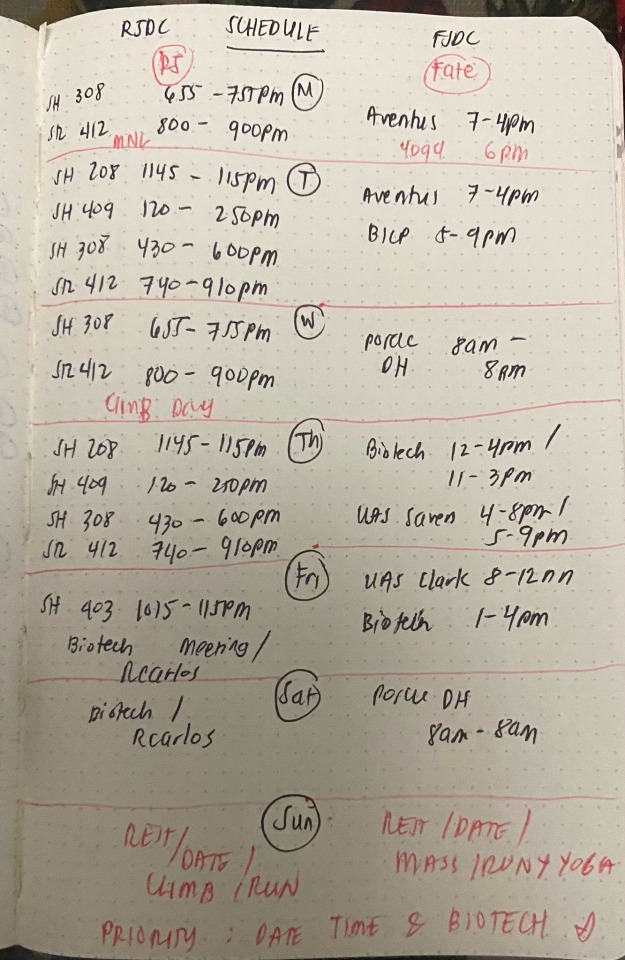 RJDC SCHEDULE FJDC
RJ Fate
SH 308 655 - 755pm M
SR 412 800 - 900pm Aventus 7-4pm
MNL Yoga 6pm
SH 208 1145 - 115pm T Aventus 7-4pm
SH 409 120 - 250pm BICP 5-9pm
SH 308 430 - 600pm
SR 412 740 - 910pm
SH 308 655 - 755pm W
SR 412 800 - 900pm DH 8am - 8pm
Climb Day
SH 208 1145 - 115pm Th Biotech 12-4pm /
SH 409 120 - 250pm 11-3pm
SH 308 430 - 600pm UAS Saven 4-8pm /
SR 412 740 - 910pm 5-9pm
Fri UAS Clark 8-12nn
SH 403 1015 - 115pm Biotech 1-4pm
Biotech Meering /
Rcarlos
Sat DH
Biotech / 8am - 8am
Rcarlos
Sun
REST / DATE / CLIMB / RUN
REST / DATE /
MASS / RUN Y YOGA
PRIORITY : DATE TIME & BIOTECH